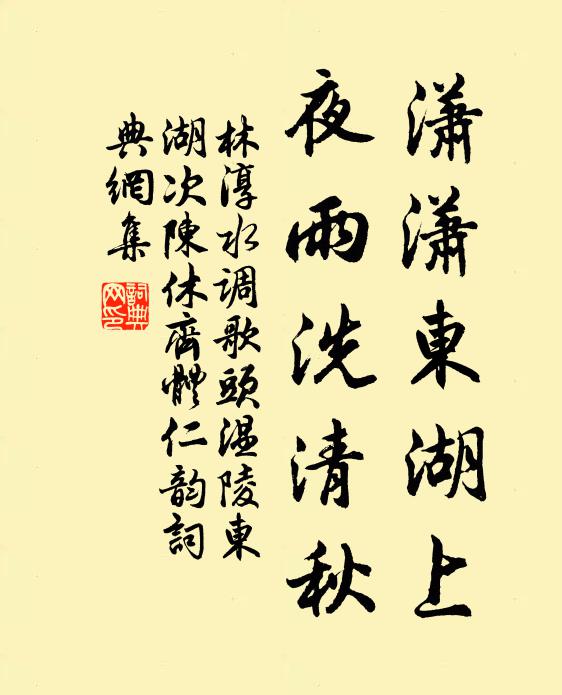 瀟瀟東湖上
夜雨洗清秋
林淳水調歌頭溫陵東
湖次陳休齋體仁韵詞
典網集
詞典
网印